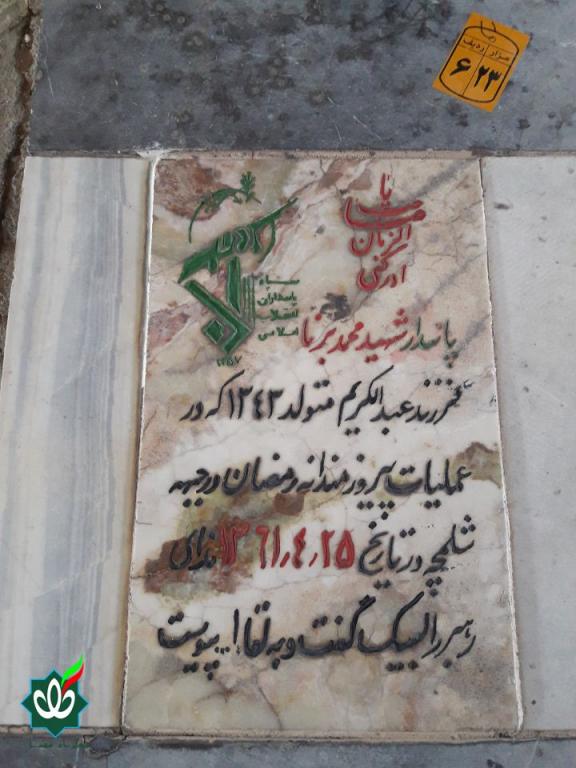 رضا
مزار ردیف
۶ ۲۳
یا
صاحب
الزمان
ادرکنی
سپاه
پاسداران
انقلاب
اسلامی
۱۳۵۷
پاسدار شهید محمد برنا
فرزند عبدالکریم متولد ۱۳۴۳ که در
عملیات پیروزمندانه رمضان در جبهه
شلمچه در تاریخ ۱۳۶۱٫۴٫۲۵ ندای
رهبر را لبیک گفت و به لقاا... پیوست